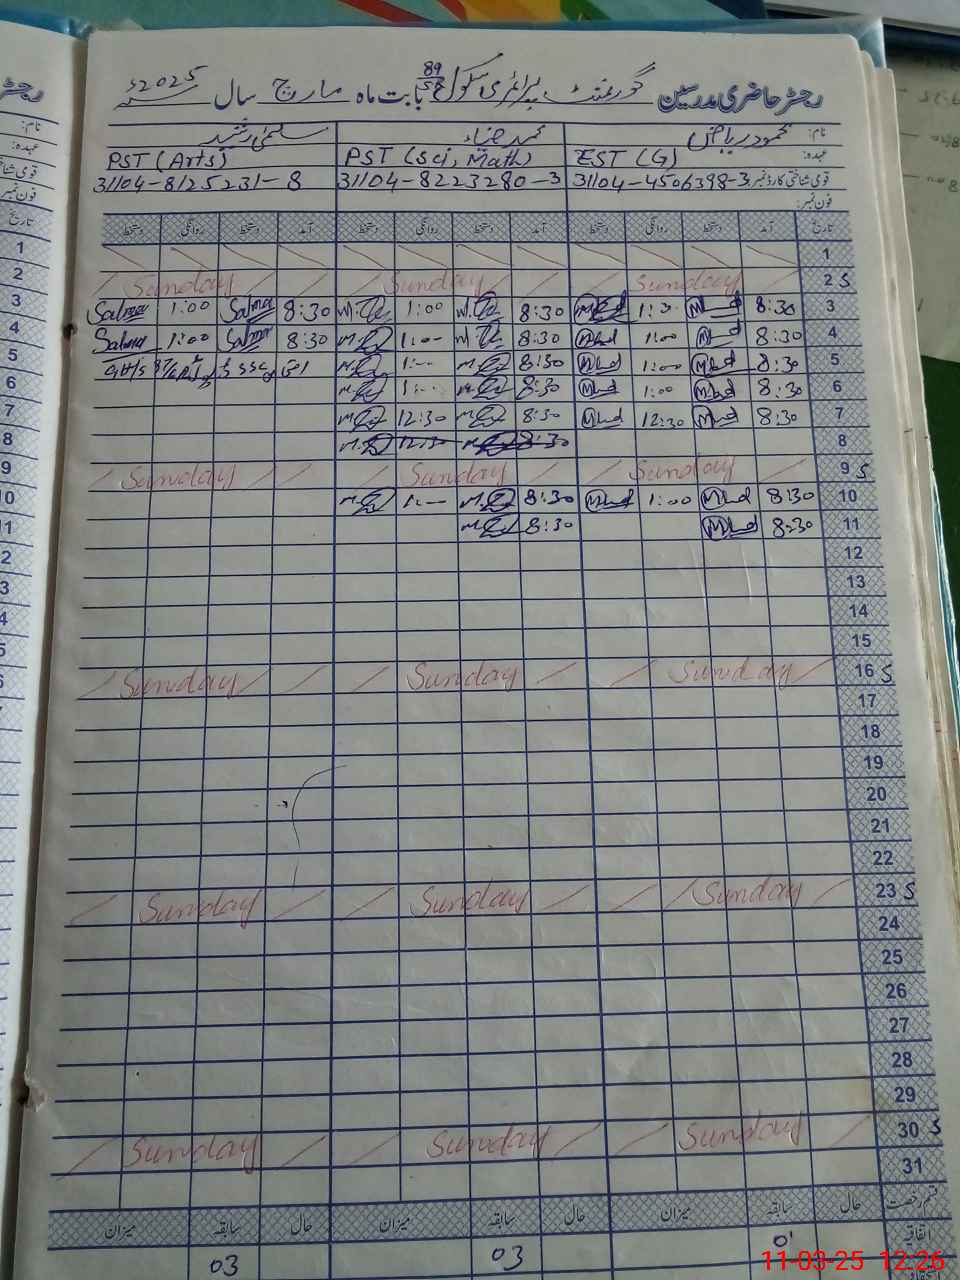 رجسٹر حاضری مدرسین گورنمنٹ پرائمری سکول 89 بابت ماہ مارچ سال 2025ء
نام: محمود ریاض محمد ضیاء سلمیٰ رشید
عہدہ: EST (G) PST (Sci, Math) PST (Arts)
قومی شناختی کارڈ نمبر: 31104-4506398-3 31104-8223280-3 31104-8125231-8
فون نمبر:
تاریخ آمد دستخط روانگی دستخط آمد دستخط روانگی دستخط آمد دستخط روانگی دستخط
1
2 S Sunday Sunday Sunday
3 8:30 1:00 8:30 1:00 8:30 Salma 1:00 Salma
4 8:30 1:00 8:30 1:00 8:30 Salma 1:00 Salma
5 8:30 1:00 8:30 1:00
6 8:30 1:00 8:30 1:00
7 8:30 12:30 8:30 12:30
8 8:30 12:30
9 S Sunday Sunday Sunday
10 8:30 1:00 8:30 1:00
11 8:30 8:30
12
13
14
15
16 S Sunday Sunday Sunday
17
18
19
20
21
22
23 S Sunday Sunday Sunday
24
25
26
27
28
29
30 S Sunday Sunday Sunday
31
قسم رخصت حال سابقہ میزان حال سابقہ میزان حال سابقہ میزان
اتفاقیہ 03 03
11-03-25 12:26